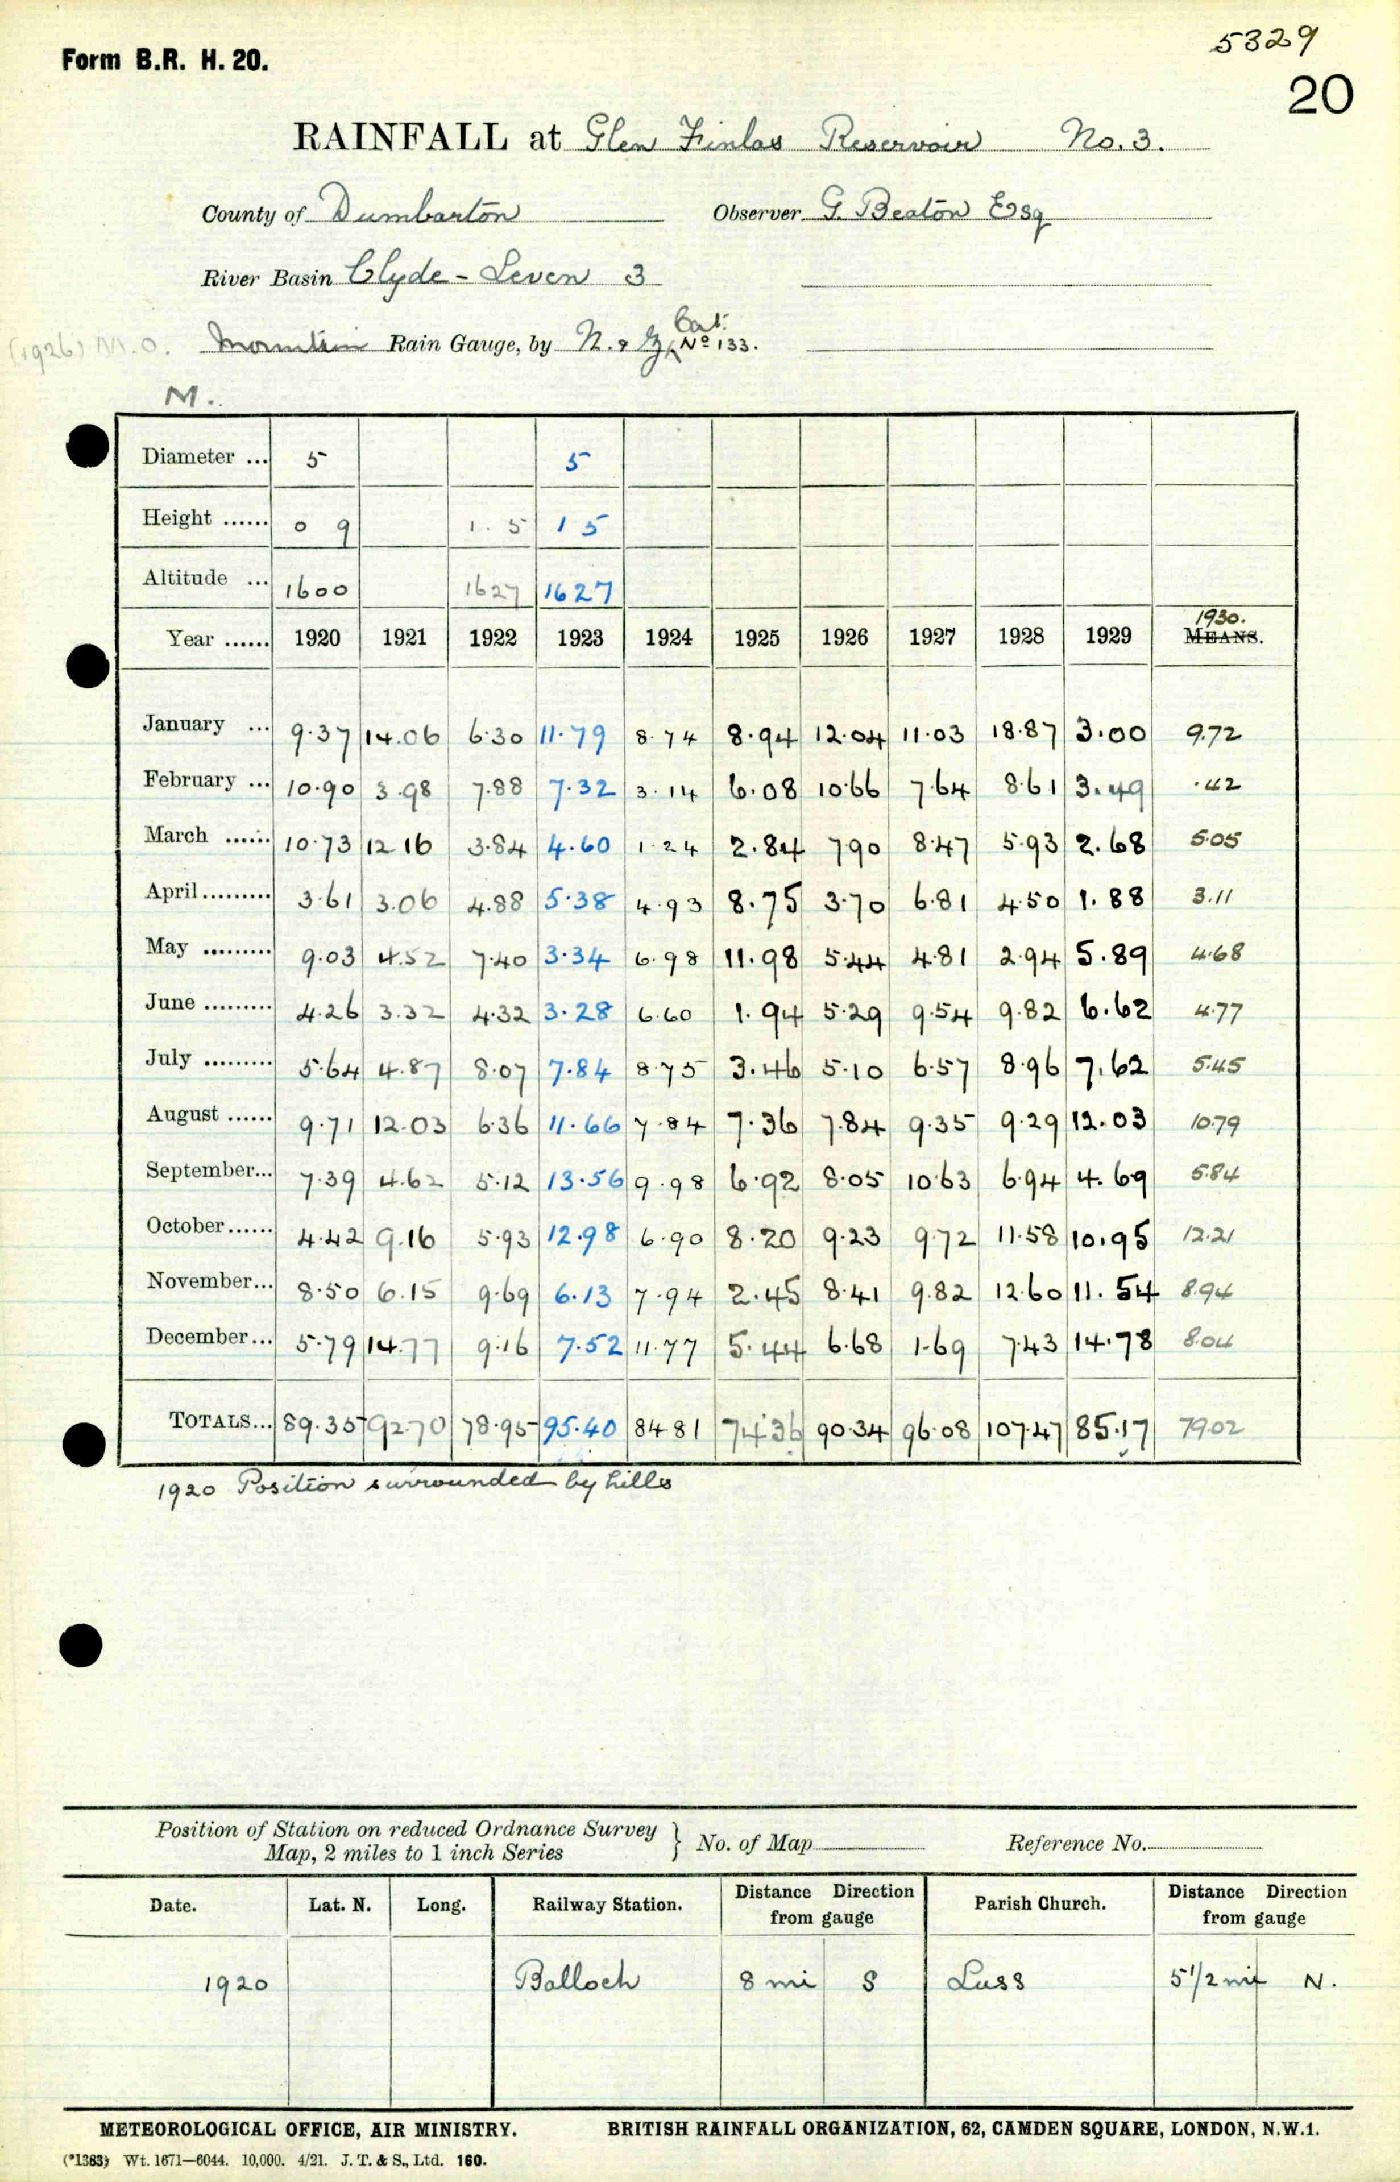 5329
Form B.R. H. 20.
20
RAINFALL at Glen Finlas Reservoir No. 3.
County of Dumbarton Observer G. Beaton Esq
River Basin Clyde - Leven 3
(1926) M.O. Mountain Rain Gauge, by N. & Z Cat. No 133.
M.
Diameter ... 5 5
Height ...... 0 9 1. 5 1 5
Altitude ... 1600 1627 1627
Year ...... 1920 1921 1922 1923 1924 1925 1926 1927 1928 1929 1930. MEANS.
January ... 9.37 14.06 6.30 11.79 8.74 8.94 12.04 11.03 18.87 3.00 9.72
February ... 10.90 3.98 7.88 7.32 3.14 6.08 10.66 7.64 8.61 3.49 .42
March ...... 10.73 12.16 3.84 4.60 1.24 2.84 7.90 8.47 5.93 2.68 5.05
April ......... 3.61 3.06 4.88 5.38 4.93 8.75 3.70 6.81 4.50 1.88 3.11
May ......... 9.03 4.52 7.40 3.34 6.98 11.98 5.44 4.81 2.94 5.89 4.68
June ......... 4.26 3.32 4.32 3.28 6.60 1.94 5.29 9.54 9.82 6.62 4.77
July ......... 5.64 4.87 8.07 7.84 8.75 3.46 5.10 6.57 8.96 7.62 5.45
August ...... 9.71 12.03 6.36 11.66 7.84 7.36 7.84 9.35 9.29 12.03 10.79
September... 7.39 4.62 5.12 13.56 9.98 6.92 8.05 10.63 6.94 4.69 5.84
October...... 4.42 9.16 5.93 12.98 6.90 8.20 9.23 9.72 11.58 10.95 12.21
November... 8.50 6.15 9.69 6.13 7.94 2.45 8.41 9.82 12.60 11.54 8.94
December... 5.79 14.77 9.16 7.52 11.77 5.44 6.68 1.69 7.43 14.78 8.04
TOTALS... 89.35 92.70 78.95 95.40 84.81 74.36 90.34 96.08 107.47 85.17 79.02
1920 Position surrounded by hills
Position of Station on reduced Ordnance Survey Map, 2 miles to 1 inch Series } No. of Map Reference No.
Date. Lat. N. Long. Railway Station. Distance Direction from gauge Parish Church. Distance Direction from gauge
1920 Balloch 8 mi S Luss 5 1/2 mi N.
METEOROLOGICAL OFFICE, AIR MINISTRY. BRITISH RAINFALL ORGANIZATION, 62, CAMDEN SQUARE, LONDON, N.W.1.
(*1383) Wt. 1671—6044. 10,000. 4/21. J. T. & S., Ltd. 160.